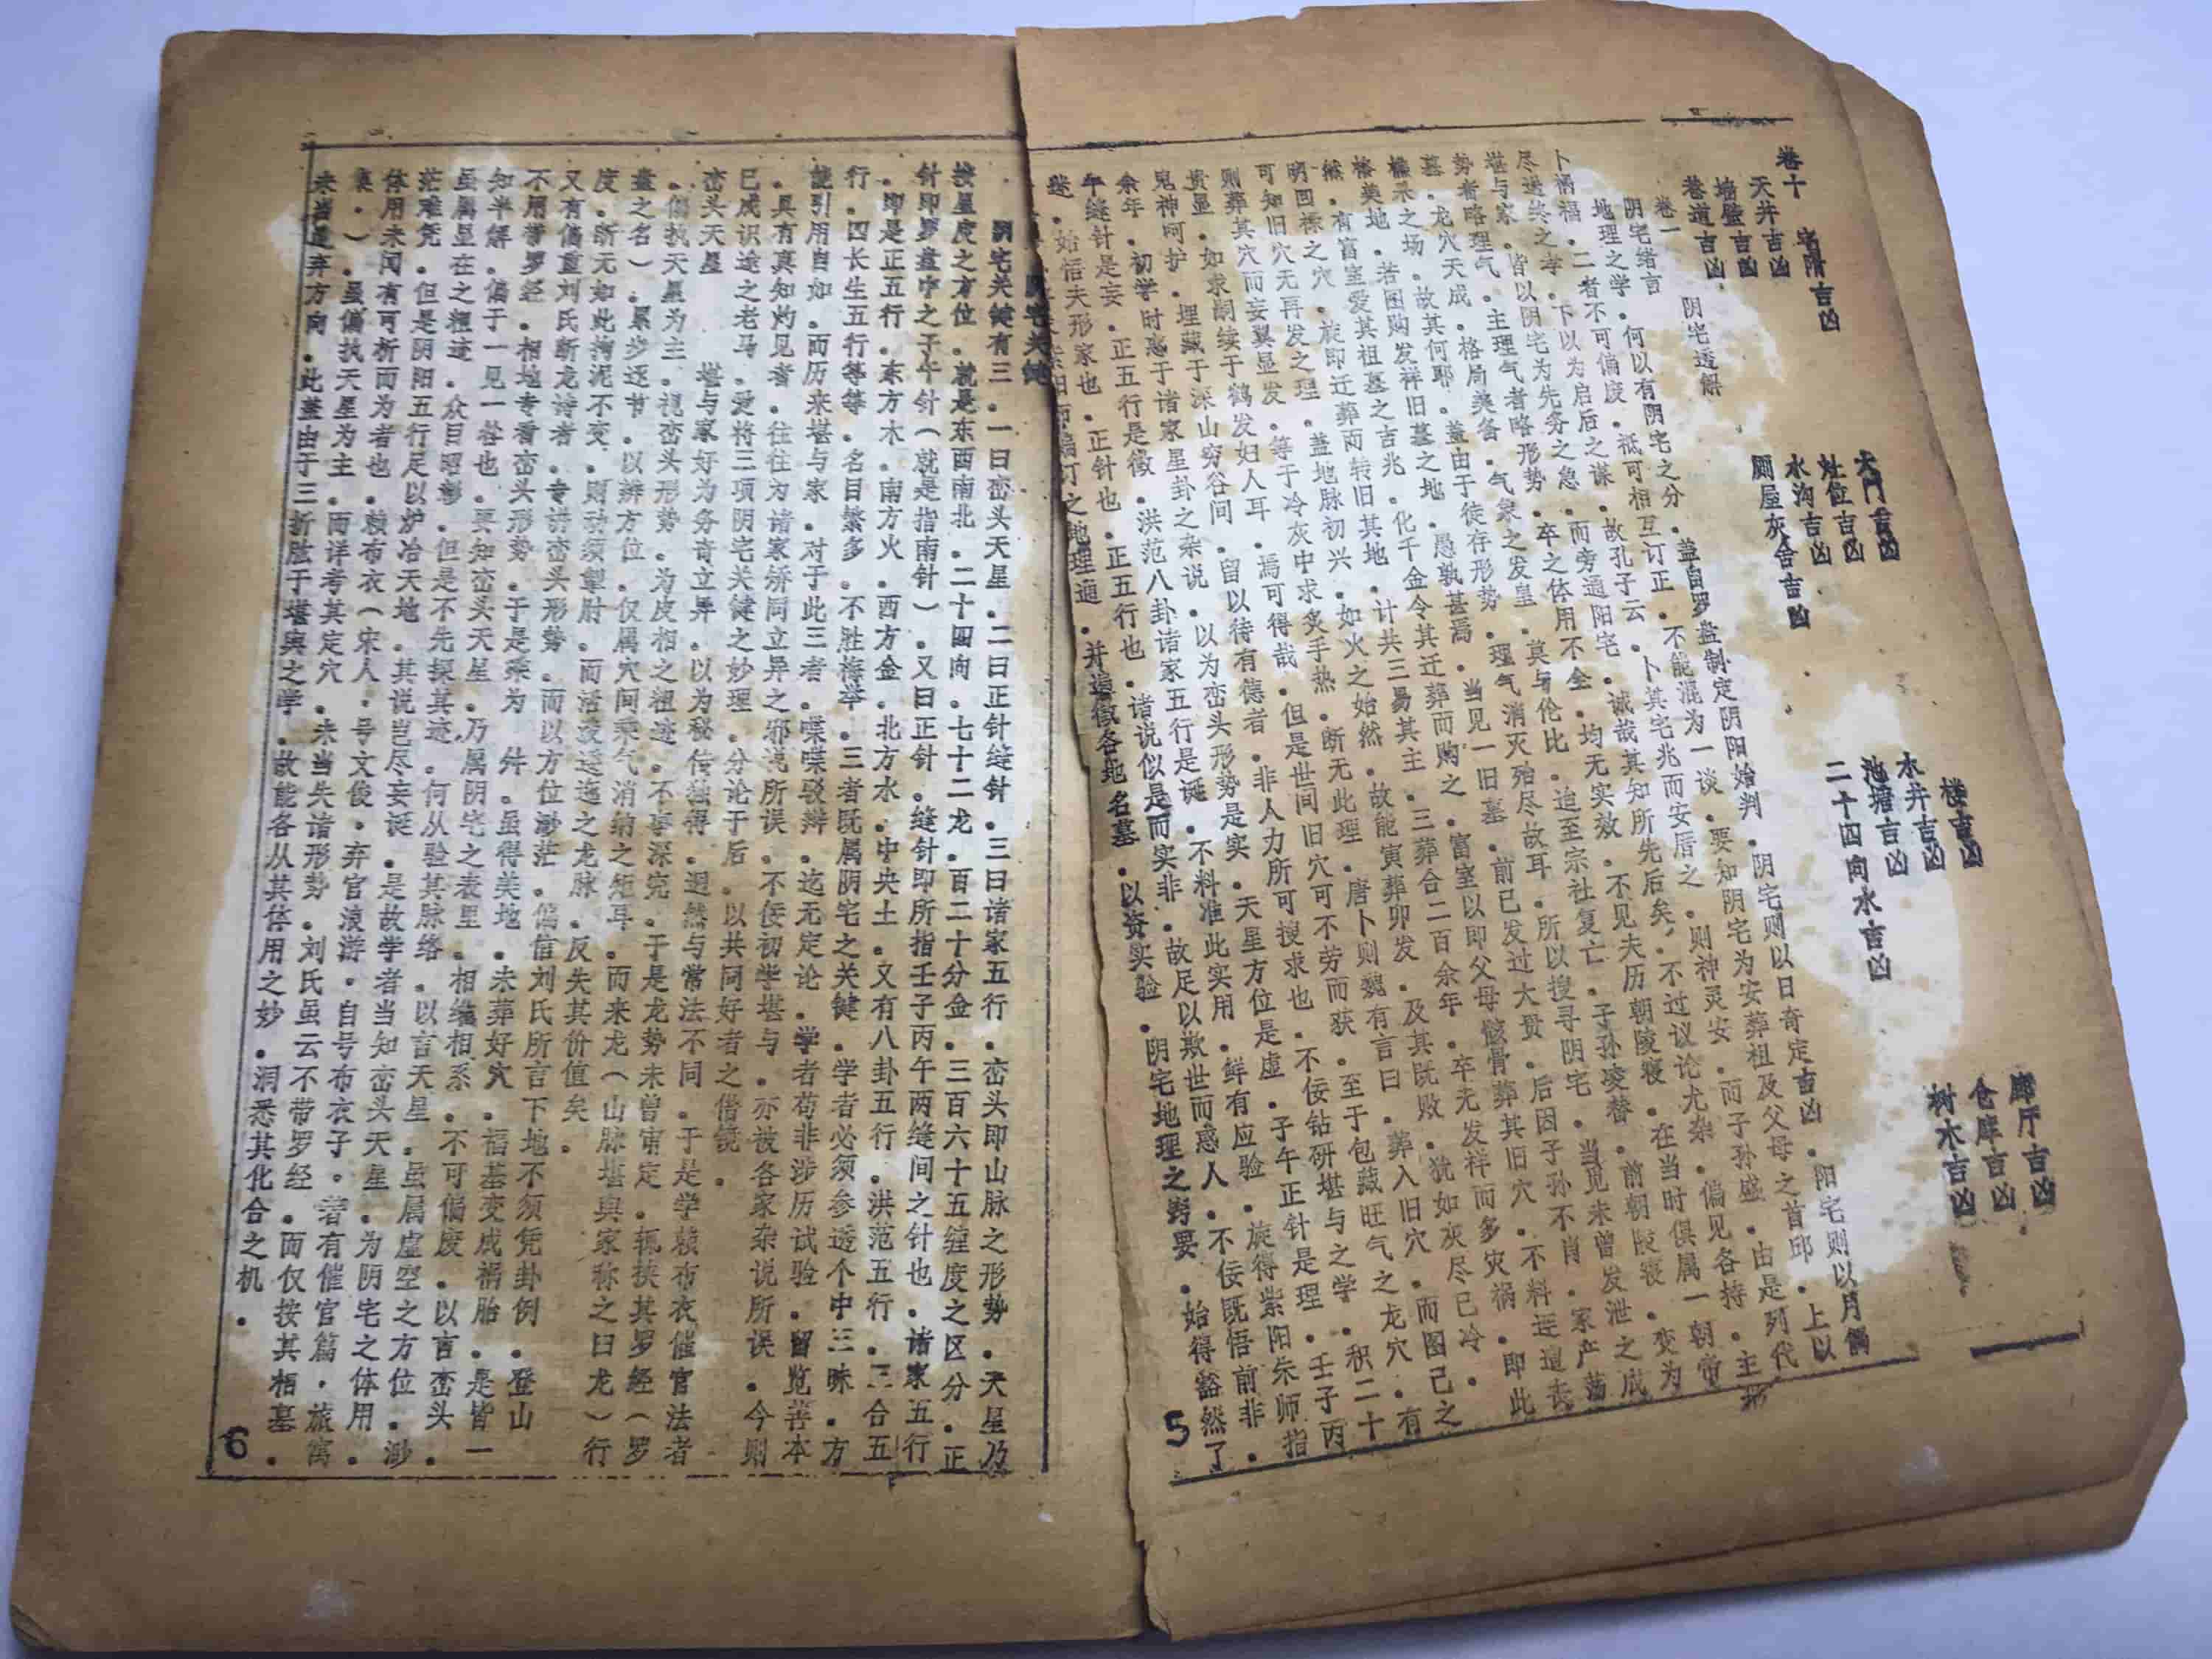 卷十 吉凶 大门吉凶 楼吉凶 廊厅吉凶
天井吉凶 灶位吉凶 水井吉凶 仓库吉凶
墙壁吉凶 水沟吉凶 池塘吉凶 树木吉凶
巷道吉凶 厕屋灰舍吉凶 二十四向水吉凶
卷一 阴宅透解
阴宅绪言
地理之学．何以有阴宅之分．盖自罗盘制定阴阳始判．阴宅则以日奇定吉凶．阳宅则以月偶
卜祸福．二者不可偏废．祗可相互订正．不能混为一谈．要知阴宅为安葬祖及父母之首邱．上以
尽送终之孝．下以为启后之谋．故孔子云．卜其宅兆而安厝之．则神灵安．而子孙盛．由是列代
堪与家．皆以阴宅为先务之急．而旁通阳宅．诚哉其知所先后矣．不过议论尤杂．偏见各持．主形
势者略理气．主理气者略形势．卒之体用不全．均无实效．不见夫历朝陵寝．在当时俱属一朝帝
墓．龙穴天成．格局美备．气象之发皇．莫与伦比．迨至宗社复亡．子孙凌替．前朝陵寝．变为
樵采之场．故其何耶．盖由于徒存形势．理气消灭殆尽故耳．所以搜寻阴宅．当见未曾发泄之成
格美地．若图购发祥旧墓之地．愚孰甚焉．当见一旧墓．前已发过大贵．后因子孙不肖．家产荡
然．有富室爱其祖墓之吉兆．化千金令其迁葬而购之．富室以即父母骸骨葬其旧穴．不料连遭丧
明回禄之穴．旋即迁葬而转旧其地．计共三易其主．三葬合二百余年．卒无发祥而多灾祸．即此
可知旧穴无再发之理．盖地脉初兴．如火之始然．故能寅葬卯发．及其既败．犹如灰尽已冷．
则葬其穴而妄冀显发．等于冷灰中求炙手热．断无此理．唐卜则巍有言曰．葬入旧穴．而图己之
贵显．如求嗣续于鹤发妇人耳．焉可得哉．但是世间旧穴可不劳而获．至于包藏旺气之龙穴．有
鬼神呵护．埋藏于深山穷谷间．留以待有德者．非人力所可搜求也．不佞钻研堪与之学．积二十
余年．初学时惑于诸家星卦之杂说．以为峦头形势是实．天星方位是虚．子午正针是理．壬子丙
午缝针是妄．正五行是徵．洪范八卦诸家五行是诞．不料准此实用．鲜有应验．旋得紫阳朱师指
迷．始悟夫形家也．正针也．正五行也．诸说似是而实非．故足以欺世而惑人．不佞既悟前非．
之地理遍．并遍徵各地名墓．以资实验．阴宅地理之窍要．始得豁然了
5
阴宅关键
阴宅关键有三．一曰峦头天星．二曰正针缝针．三曰诸家五行．峦头即山脉之形势．天星乃
按星度之方位．就是东西南北．二十四向．七十二龙．百二十分金．三百六十五缠度之区分．正
针即罗盘中之子午针（就是指南针）．又曰正针．缝针即所指壬子丙午两缝间之针也．诸家五行
．即是正五行．东方木．南方火．西方金．北方水．中央土．又有八卦五行．洪范五行．三合五
行．四长生五行等等．名目繁多．不胜梅举．三者既属阴宅之关键．学者必须参透个中三昧．方
能引用自如．而历来堪与家．对于此三者．喋喋驳辩．迄无定论．学者苟非涉历试验．留览善本
．具有真知灼见者．往往为诸家矫同立异之邪说所误．不佞初学堪与．亦被各家杂说所误．今则
已成识途之老马．爰将三项阴宅关键之妙理．分论于后．以共同好者之借镜．
峦头天星
堪与家好为务奇立异．以为秘传独得．迥然与常法不同．于是学赖布衣催官法者
．偏执天星为主．视峦头形势．为皮相之粗迹．不事深究．于是龙势未曾审定．辄挟其罗经（罗
盘之名）．累步逐节．以辨方位．仅属穴间乘气消纳之矩耳．而来龙（山脉堪舆家称之曰龙）行
度．断无如此拘泥不变．则动须掣肘．而活泼逶迤之龙脉．反失其价值矣．
又有偏重刘氏断龙诗者．专讲峦头形势．而以方位渺茫．偏信刘氏所言下地不须凭卦例．登山
不用带罗经．相地专看峦头形势．于是殊为　舛．虽得美地．未葬好穴．福基变成祸胎．是皆一
知半解．偏于一见一咎也．要知峦头天星．乃属阴宅之表里．相缠相系．不可偏废．以言峦头．
虽属显在之粗迹．众目昭彰．但是不先探其迹．何从验其脉络．以言天星．虽属虚空之方位．渺
茫难凭．但是阴阳五行足以炉冶天地．其说岂尽妄诞．是故学者当知峦头天星．为阴宅之体用．
体用未闻有可析而为者也．赖布衣（宋人．号文俊．弃官浪游．自号布衣子．著有催官篇．旅寓
集．）．虽偏执天星为主．而详考其定穴．未当失诸形势．刘氏虽云不带罗经．而仅按其相墓．
未当遗弃方向．此盖由于三折肱于堪舆之学．故能各从其体用之妙．洞悉其化合之机．
6